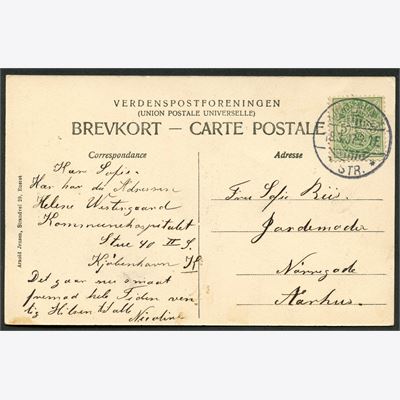 VERDENSPOSTFORENINGEN
(UNION POSTALE UNIVERSELLE)
BREVKORT — CARTE POSTALE
Correspondance
Kære Sofie.
Her har du Adressen
Helene Westergaard
Kommunehospitalet
Stue 40 II S.
Kjøbenhavn K.
Det gaar nu smaat
fremad hele Tiden ven-
lig Hilsen til alle
Nicoline
Adresse
Frue Sofie Riis
Jordemoder
Nørregade
Aarhus.
STR.
Arnold Jensen, Strandvej 29,